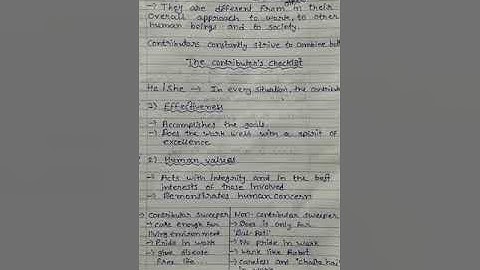 other
→ They are different from in their
overall approach to work, to other
human beings and to society.
Contributors constantly strive to combine both
The contributor's checklist
He/She → In every situation, the contribut
1) Effectiveness
→ Accomplishes the goals
→ Does the work well with a spirit of
excellence
2) Human values
→ Acts with integrity and in the best
interests of those involved
→ Demonstrates human concern
→ Contributor sweeper
→ care enough for
living environment
→ Pride in work
→ give disease
free life
Non-contributor sweeper
→ Does is only for
"Dal-Roti"
→ No pride in work
→ Work like Robot
→ Careless and "Chalta hai"